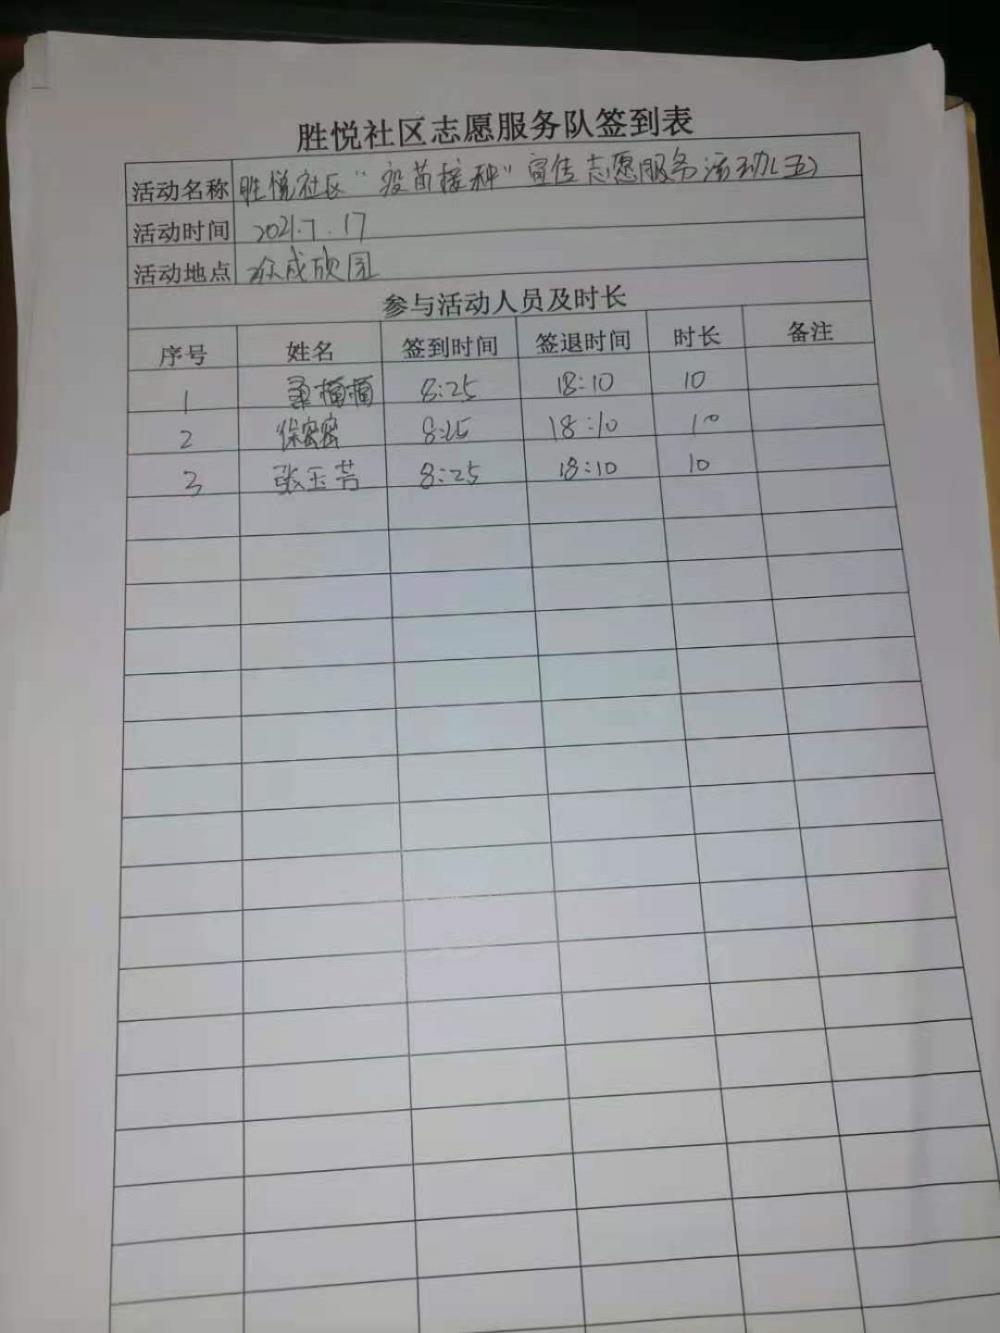 胜悦社区志愿服务队签到表
活动名称 胜悦社区“疫苗接种”宣传志愿服务活动(五)
活动时间 2021.7.17
活动地点 众成欣园
参与活动人员及时长
序号 姓名 签到时间 签退时间 时长 备注
1 8:25 18:10 10
2 徐密密 8:25 18:10 10
3 张玉芳 8:25 18:10 10